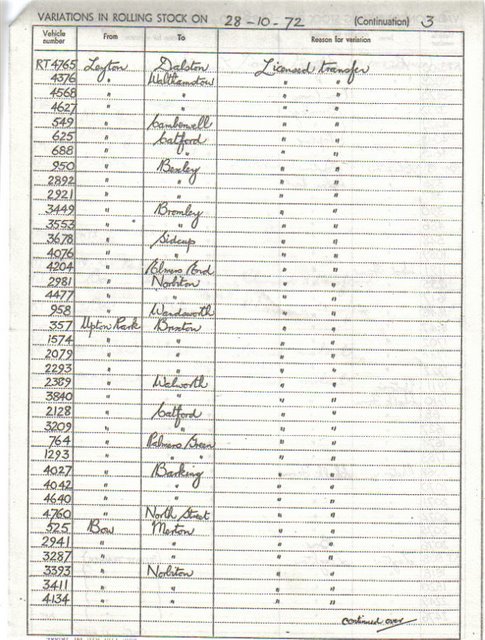 VARIATIONS IN ROLLING STOCK ON 28-10-72 (Continuation) 3
Vehicle number From To Reason for variation
RT 4765 Leyton Dalston Licensed transfer
4376 " Walthamstow " "
4568 " " " "
4627 " " " "
549 " Camberwell " "
625 " Catford " "
688 " " " "
950 " Bexley " "
2892 " " " "
2921 " " " "
3449 " Bromley " "
3553 " " " "
3678 " Sidcup " "
4076 " " " "
4204 " Elmers End " "
2981 " Norbiton " "
4477 " " " "
958 " Wandsworth " "
357 Upton Park Brixton " "
1574 " " " "
2079 " " " "
2293 " " " "
2389 " Walworth " "
3840 " " " "
2128 " Catford " "
3209 " " " "
764 " Palmers Green " "
1293 " " " " "
4027 " Barking " "
4042 " " " "
4640 " " " "
4760 " North Street " "
525 Bow Merton " "
2941 " " " "
3287 " " " "
3393 " Norbiton " "
3411 " " " "
4134 " " " "
continued over